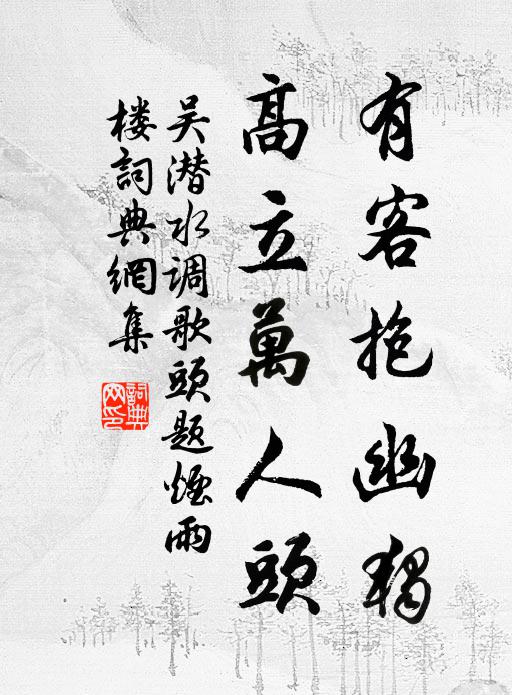 有客抱幽獨
高立萬人頭
吴潜水调歌頭题煙雨
楼詞典網集
詞典
网印